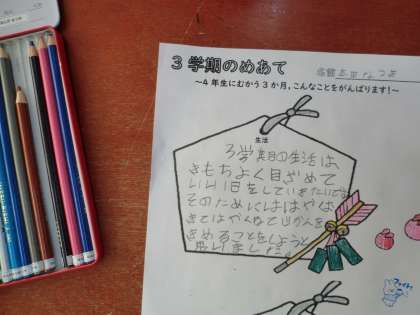 3学期のめあて
～4年生にむかう3か月,こんなことをがんばります!～
生活
3学期の生活は、
きもちよく目ざめて
いい1日をしていきたいです
そのためにははやは
きてはやくねて じかんを
きめることをしようと
思いました。
ファイト!